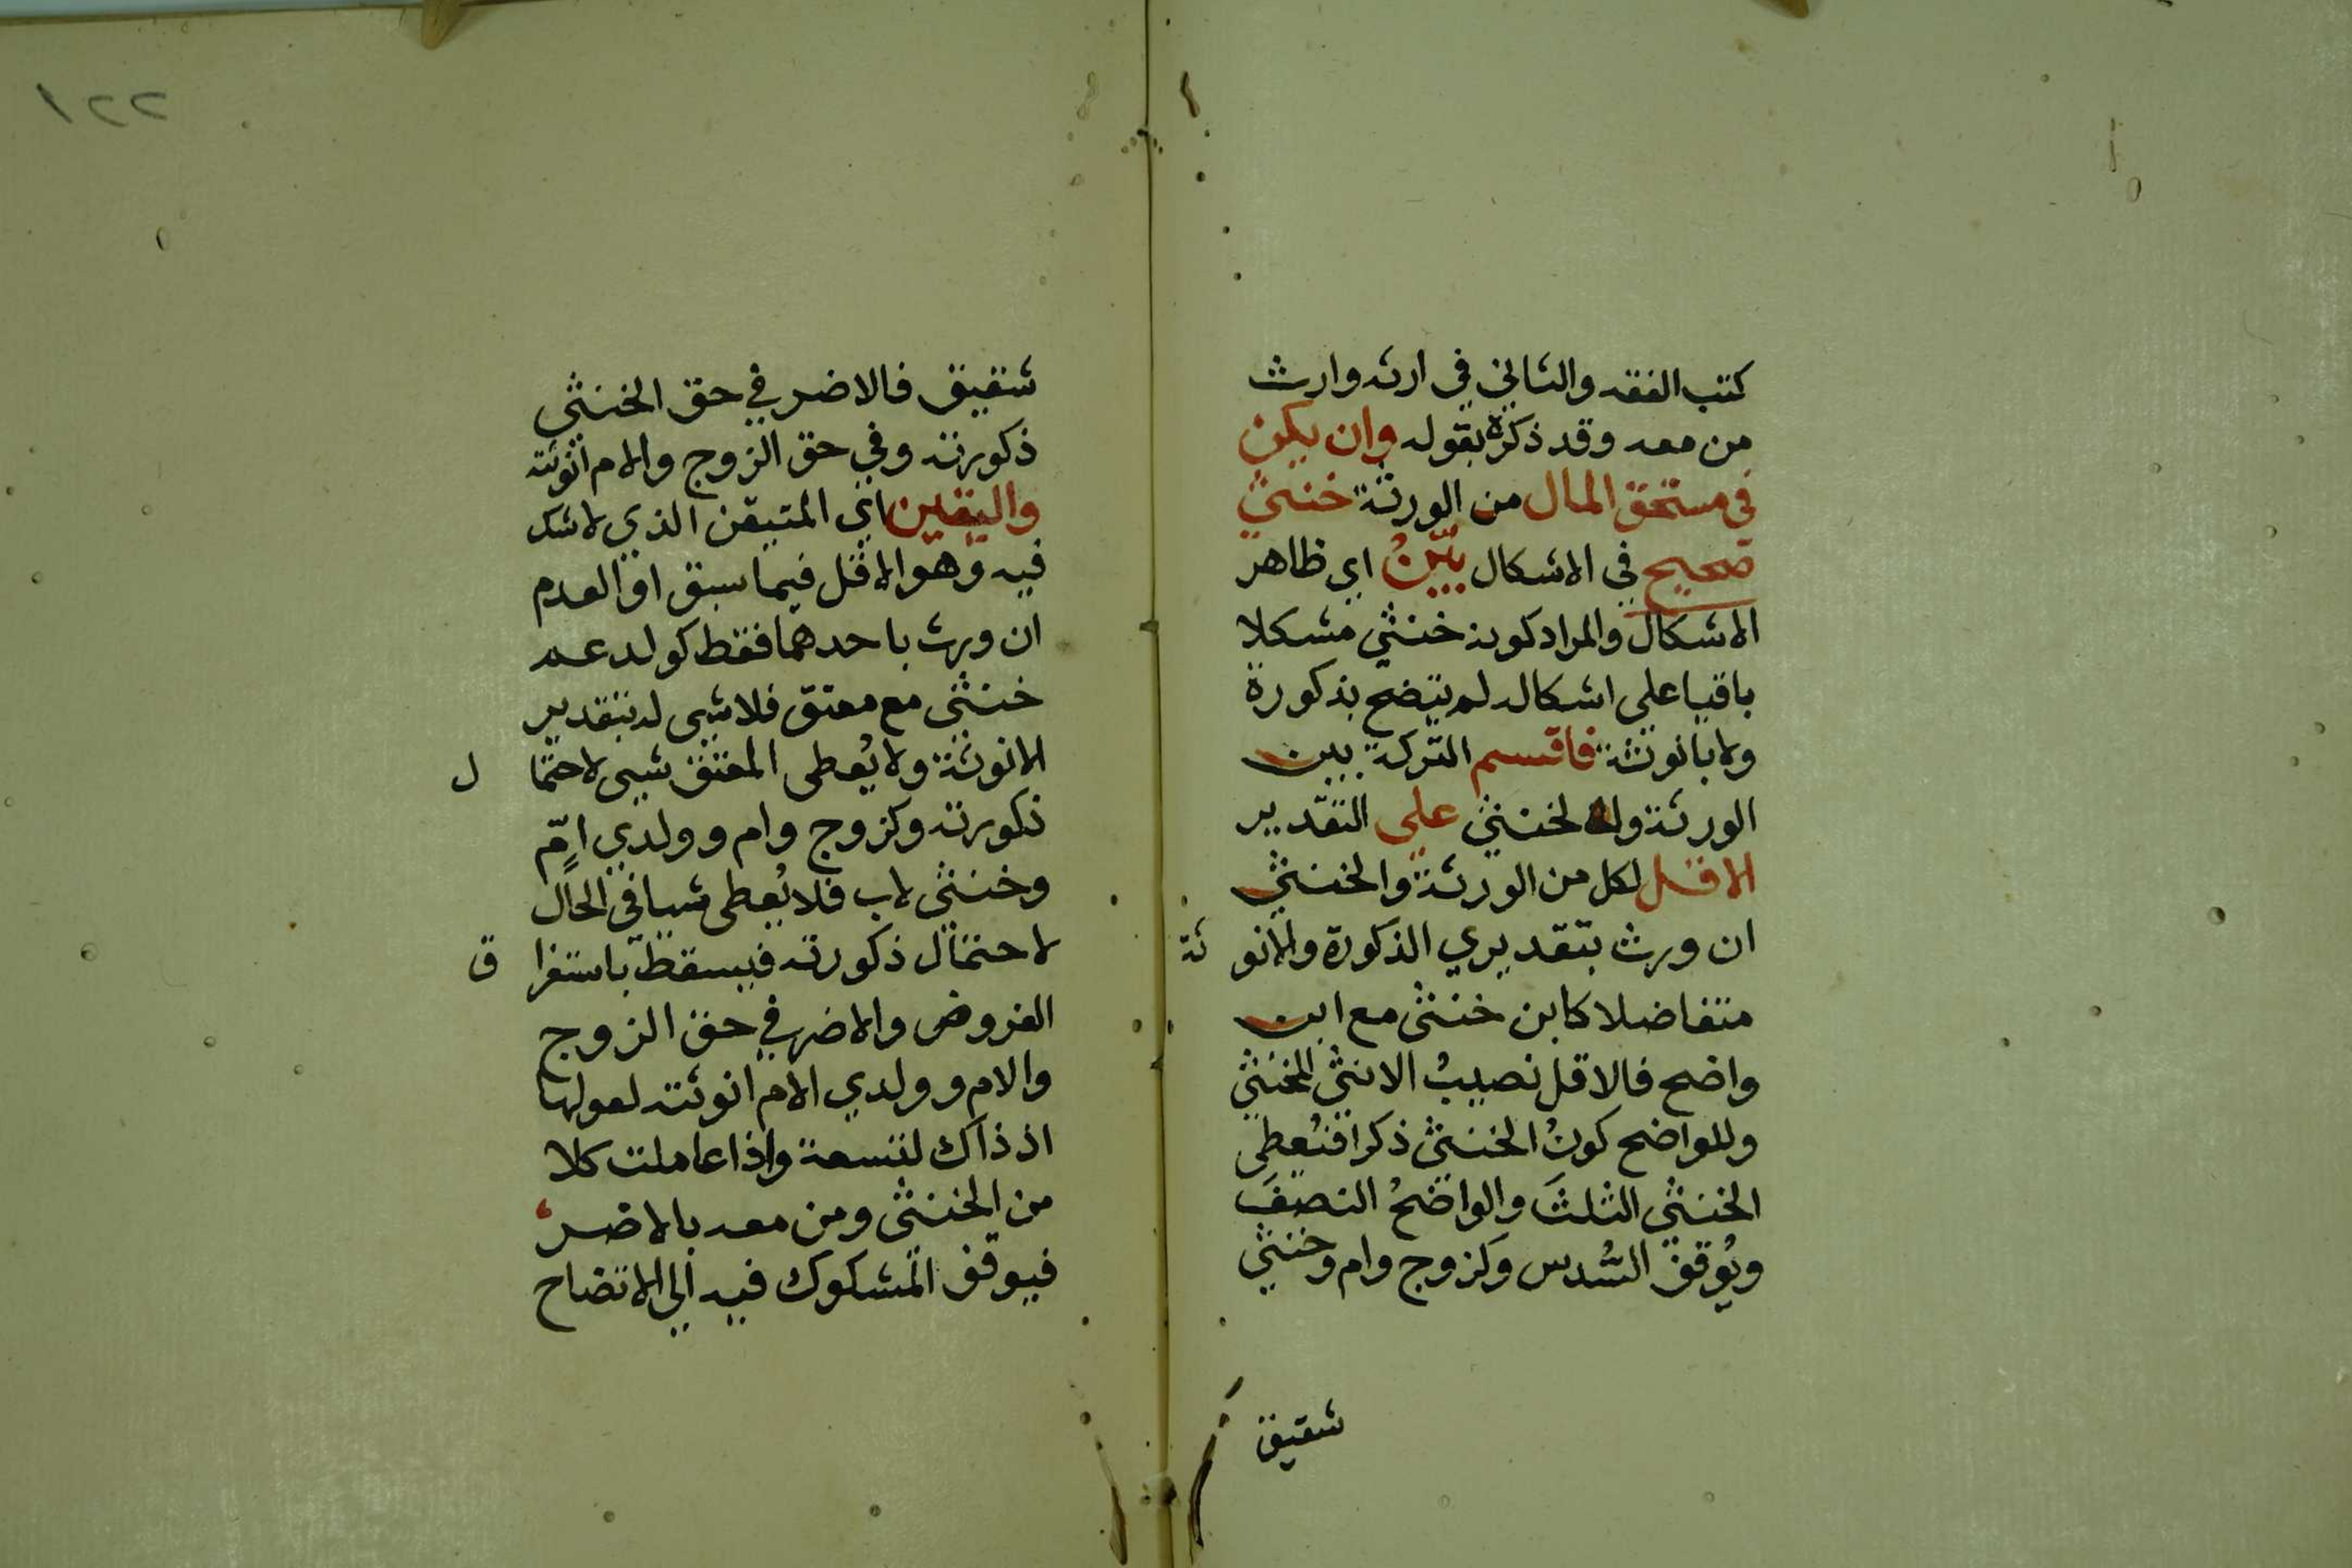 كتب الفقه والثاني في ارثه وارث
من معه وقد ذكره بقوله وان يكن
في مستحق المال من الورثة خنثى
صحيح في الاشكال بيّنُ اي ظاهر
الاشكال والمراد كونه خنثى مشكلا
باقيا على اشكاله لم يتضح بذكورة
ولا بانوثة فاقسم التركة بين
الورثة والخنثى على التقدير
الاقل لكل من الورثة والخنثى
ان ورث بتقديري الذكورة والانوثة
متفاضلا كابن خنثى مع ابن
واضح فالاقل نصيبُ الانثى للخنثى
وللواضح كونُ الخنثى ذكرا فيُعطى
الخنثى الثلثَ والواضحُ النصفَ
ويُوقف السُّدس وكزوج وام وخنثى
شقيق
١٢٢
شقيق فالاضر في حق الخنثى
ذكورته وفي حق الزوج والام انوثته
واليقين اي المتيقن الذي لا شك
فيه وهو الاقل فيما سبق او العدم
ان ورث باحدهما فقط كولد عم
خنثى مع معتق فلا شيى له بتقدير
الانوثة ولا يُعطى المعتق شيى لاحتمال
ذكورته وكزوج وام وولدي امّ
وخنثى لاب فلا يُعطى شيا في الحال
لاحتمال ذكورته فيسقط باستغراق
الفروض والاضر في حق الزوج
والام وولدي الام انوثته لعولها
اذ ذاك لتسعة واذا عاملت كلا
من الخنثى ومن معه بالاضر
فيوقف المشكوك فيه الى الاتضاح